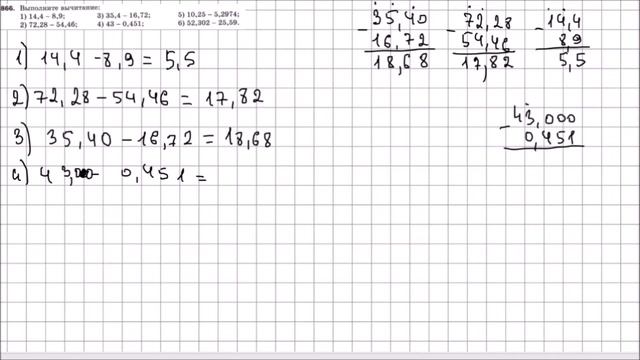 866. Выполните вычитание:
1) 14,4 – 8,9; 3) 35,4 – 16,72; 5) 10,25 – 5,2974;
2) 72,28 – 54,46; 4) 43 – 0,451; 6) 52,302 – 25,59.
1) 14,4 - 8,9 = 5,5
2) 72,28 - 54,46 = 17,82
3) 35,40 - 16,72 = 18,68
4) 43, - 0,451 =
35,40
- 16,72
18,68
72,28
- 54,46
17,82
14,4
- 8,9
5,5
43,000
- 0,451